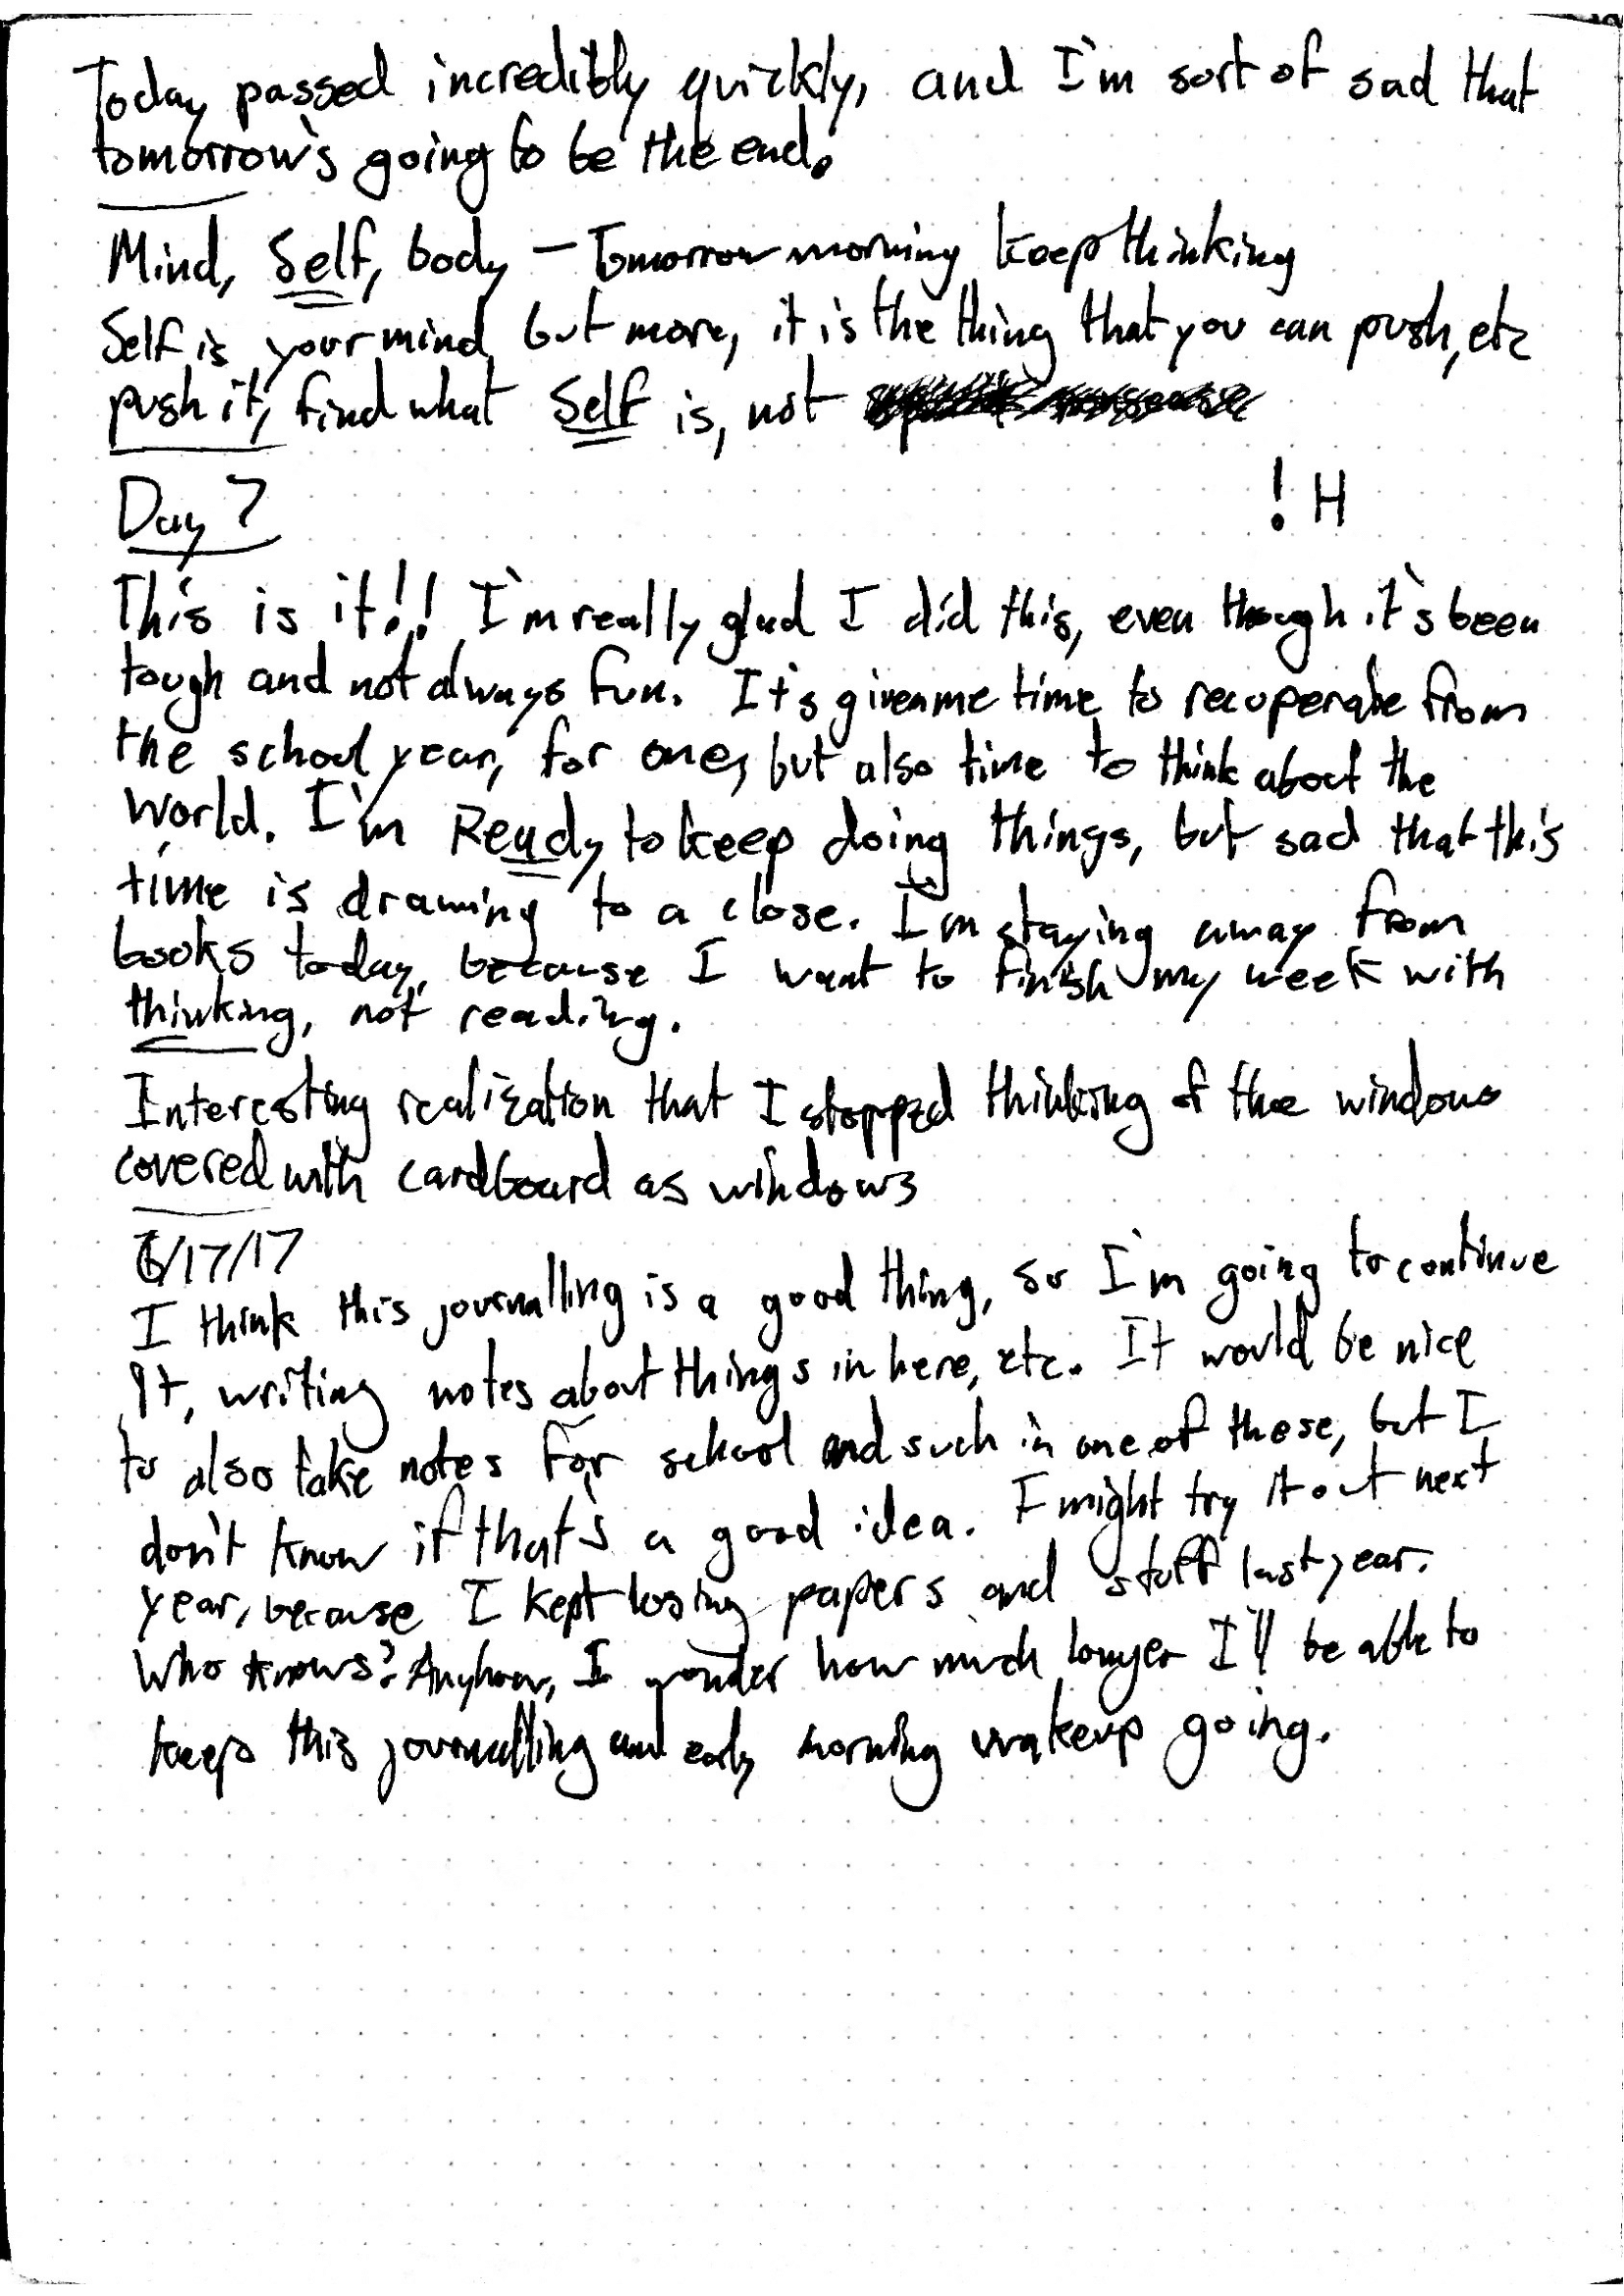 Today passed incredibly quickly, and I'm sort of sad that
tomorrow's going to be the end.
Mind, Self, body – Tomorrow morning keep thinking
Self is your mind, but more, it is the thing that you can push, etc
push it, find what Self is, not
! H
Day 7
This is it!! I'm really glad I did this, even though it's been
tough and not always fun. It's given me time to recuperate from
the school year, for one, but also time to think about the
world. I'm Ready to keep doing things, but sad that this
time is drawing to a close. I'm staying away from
books today, because I want to finish my week with
thinking, not reading.
Interesting realization that I stopped thinking of the windows
covered with cardboard as windows
6/17/17
I think this journalling is a good thing, so I'm going to continue
it, writing notes about things in here, etc. It would be nice
to also take notes for school and such in one of these, but I
don't know if that's a good idea. I might try it out next
year, because I kept losing papers and stuff last year.
Who knows? Anyhow, I wonder how much longer I'll be able to
keep this journalling and early morning wakeup going.